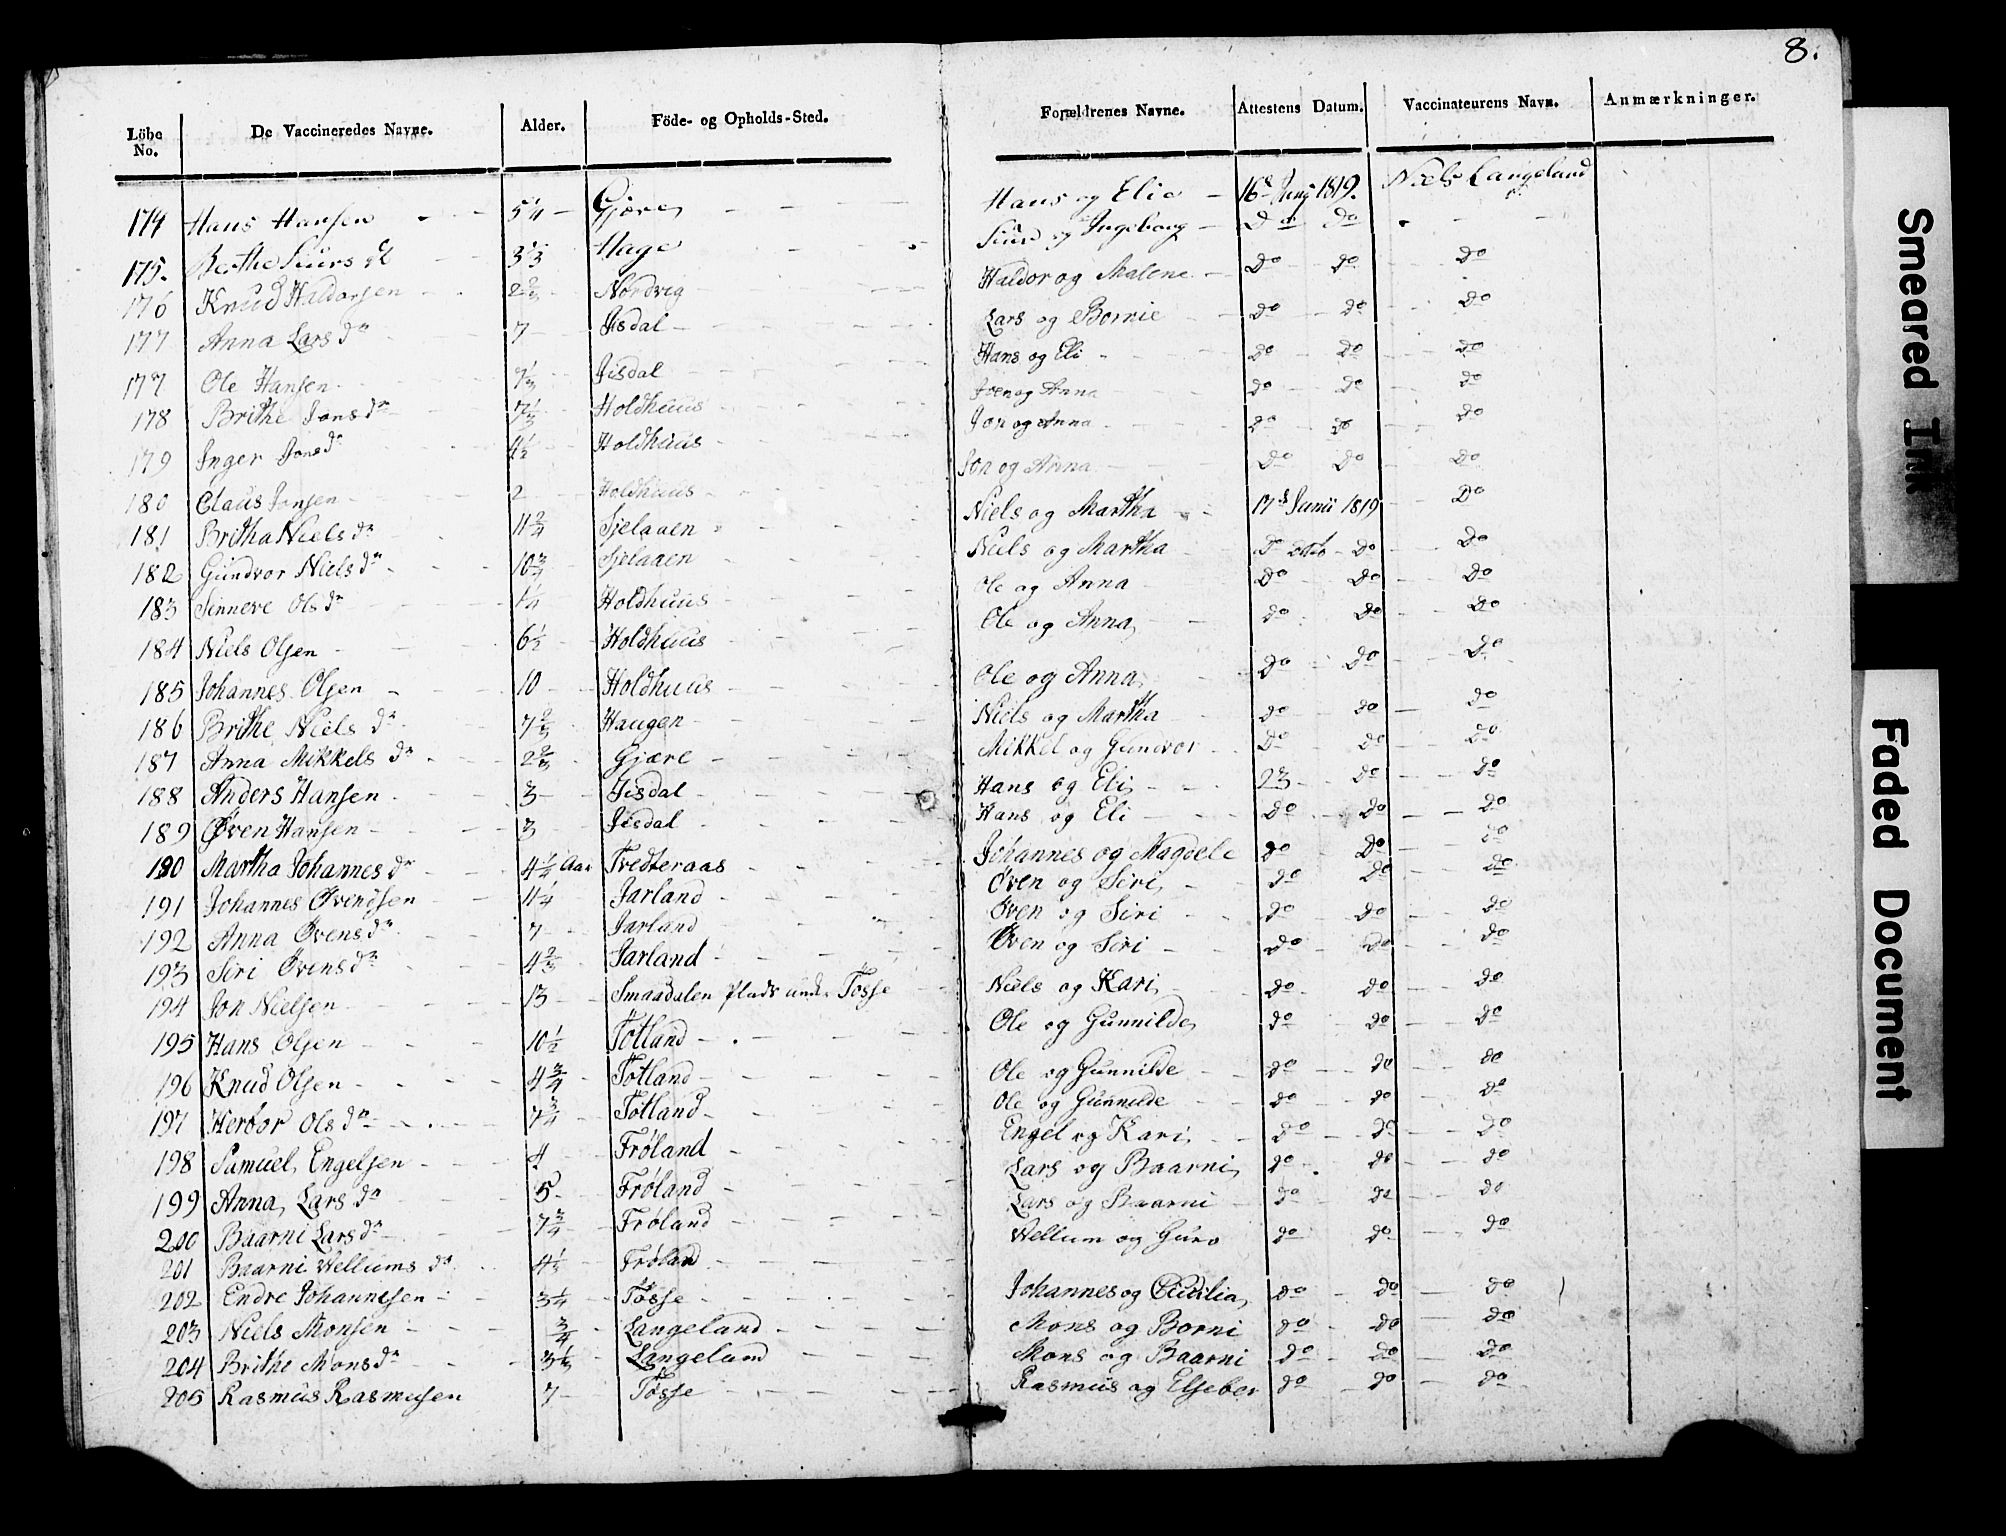 8.
Löbe No. De Vaccineredes Navne. Alder. Föde- og Opholds-Sted. Forældrenes Navne. Attestens Datum. Vaccinateurens Navn. Anmærkninger.
174 Hans Hansen - 5 1/4 - Gjære - - - Hans og Elie - 16d Junij 1819. Niels Langeland
175. Berthe Siurs dr - 3 1/3 Hage - - Siur og Ingeborg - Do Do - - -
176 Knud Haldorsen - 2 2/3 - Nordvig - - Haldor og Malene - Do - Do - Do
177 Anna Lars dr - 7 - Jisdal - - - Lars og Bornie - Do - Do - Do
177 Ole Hansen - 7 1/3 Jisdal - - - Hans og Eli - - Do - Do - Do
178 Brithe Jons dr - 7 1/3 - Holdhuus - - - Joen og Anna do - do - do
179 Inger Jons dr - 4 1/2 - Holdhuus - - - Jon og Anna - do - do - do
180 Claus Jonsen - 2 - Holdhuus - - - Jon og Anna - Do - Do - Do
181 Britha Niels dr - 11 2/4 - Sjelaaen - - - Niels og Martha - 17d Junii 1819 - Do
182 Gundvor Niels dr - 10 3/4 - Sjelaaen - - - Niels og Martha - Do - Do - Do
183 Sinneve Ols dr - 1 1/4 - Holdhuus - - - Ole og Anna - Do - Do - Do
184 Niels Olsen - 6 1/2 - Holdhuus - - - Ole og Anna - do - Do - Do
185 Johannes Olsen - 10 - Holdhuus - - - Ole og Anna Do - Do - Do
186 Brithe Niels dr - 7 2/3 - Haugen - - - Niels og Martha - do - do - do
187 Anna Mikkels dr - 2 2/3 - Gjære - - - Mikkel og Gundvor - Do - Do - Do
188 Anders Hansen - 3 - Jisdal - - - Hans og Eli - - 23 - Do - Do
189 Øven Hansen - 3 - Jisdal - - - Hans og Eli - - Do - Do - Do
190 Martha Johannes dr - 4 1/2 Aar Tvedteraas - - Johannes og Magdele do - Do - do
191 Johannes Øvendsen - 11 1/4 - Jarland - - - Øven og Siri - do - do - do
192 Anna Øvens dr - 7 - Jarland - - - Øven og Siri - do - do - do
193 Siri Øvens dr - 4 2/3 - Jarland - - - Øven og Siri - do - do - do
194 Jon Nielsen - 13 - Smaadalen Plads under Tøsse - Niels og Kari - do - do - do
195 Hans Olsen - 10 1/2 - Totland - - - Ole og Gunnilde do - do - do
196 Knud Olsen - 4 3/4 - Totland - - - Ole og Gunnilde - do - do - do
197 Herbor Ols dr - 7 3/4 - Totland - - - Ole og Gunnilde - do - do - do
198 Samuel Engelsen - 4 - Frøland - - - Engel og Kari - Do - Do - Do
199 Anna Lars dr - 5 - Frøland - - - Lars og Baarni do - do - do
200 Baarni Lars dr - 7 3/4 - Frøland - - - Lars og Baarni - do - do - do
201 Baarni Vellums dr - 4 1/3 - Frøland - - - Vellum og Guro - do - do - do
202 Endre Johannesen - 3 1/4 - Tøsse - - - Johannes og Cicilia do - do - do
203 Niels Monsen - 3/4 - Langeland - - - Mons og Borni - do - do - do
204 Brithe Mons dr - 3 1/3 - Langeland - - - Mons og Baarni - do - do - do
205 Rasmus Rasmusen 7 - Tøsse - - - Rasmus og Elseber do - do - do
Smeared Ink
Faded Document